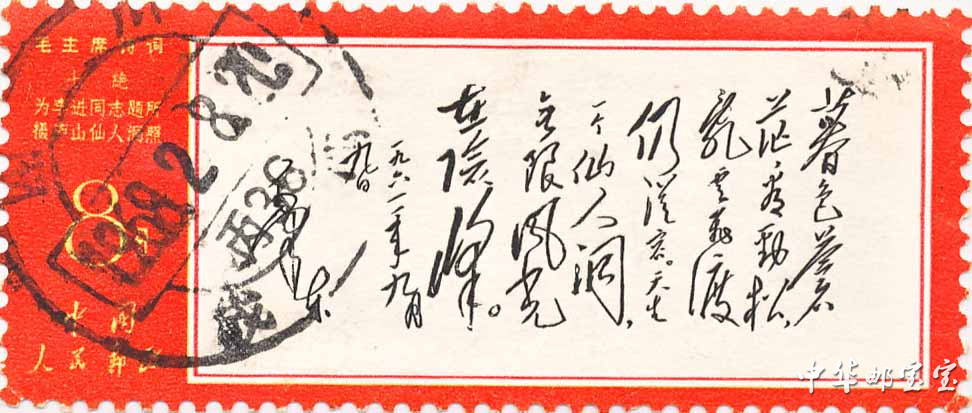 毛主席诗词
七绝
为李进同志题所
摄庐山仙人洞照
8分
中国
人民邮政
暮色苍
茫看劲松,
乱云飞渡
仍从容。天生
一个仙人洞,
无限风光
在险峰。
一九六一年九月
九日
毛泽东
1969.2.8
中华邮宝宝